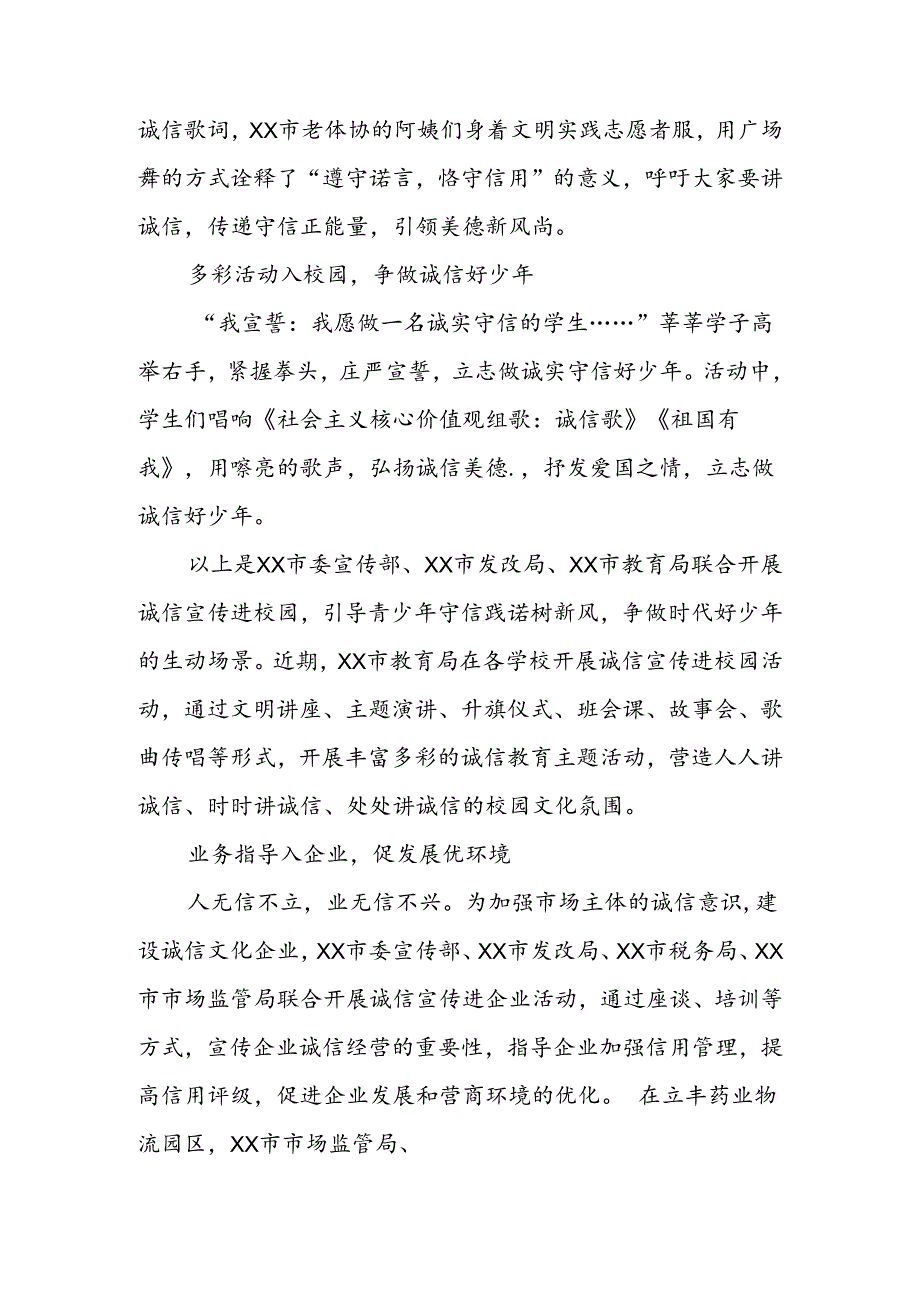 诚信歌词，XX市老体协的阿姨们身着文明实践志愿者服，用广场
舞的方式诠释了“遵守诺言，恪守信用”的意义，呼吁大家要讲
诚信，传递守信正能量，引领美德新风尚。
多彩活动入校园，争做诚信好少年
“我宣誓：我愿做一名诚实守信的学生……”莘莘学子高
举右手，紧握拳头，庄严宣誓，立志做诚实守信好少年。活动中，
学生们唱响《社会主义核心价值观组歌：诚信歌》《祖国有
我》，用嘹亮的歌声，弘扬诚信美德.，抒发爱国之情，立志做
诚信好少年。
以上是XX市委宣传部、XX市发改局、XX市教育局联合开展
诚信宣传进校园，引导青少年守信践诺树新风，争做时代好少年
的生动场景。近期，XX市教育局在各学校开展诚信宣传进校园活
动，通过文明讲座、主题演讲、升旗仪式、班会课、故事会、歌
曲传唱等形式，开展丰富多彩的诚信教育主题活动，营造人人讲
诚信、时时讲诚信、处处讲诚信的校园文化氛围。
业务指导入企业，促发展优环境
人无信不立，业无信不兴。为加强市场主体的诚信意识,建
设诚信文化企业，XX市委宣传部、XX市发改局、XX市税务局、XX
市市场监管局联合开展诚信宣传进企业活动，通过座谈、培训等
方式，宣传企业诚信经营的重要性，指导企业加强信用管理，提
高信用评级，促进企业发展和营商环境的优化。 在立丰药业物
流园区，XX市市场监管局、